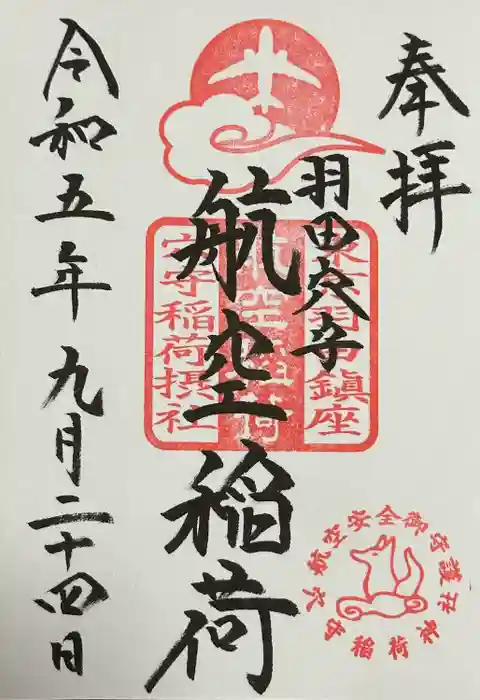 奉拝
羽田穴守
航空稲荷
令和五年九月二十四日
東京羽田鎮座
航空稲荷
穴守稲荷摂社
安全御守護
穴守稲荷